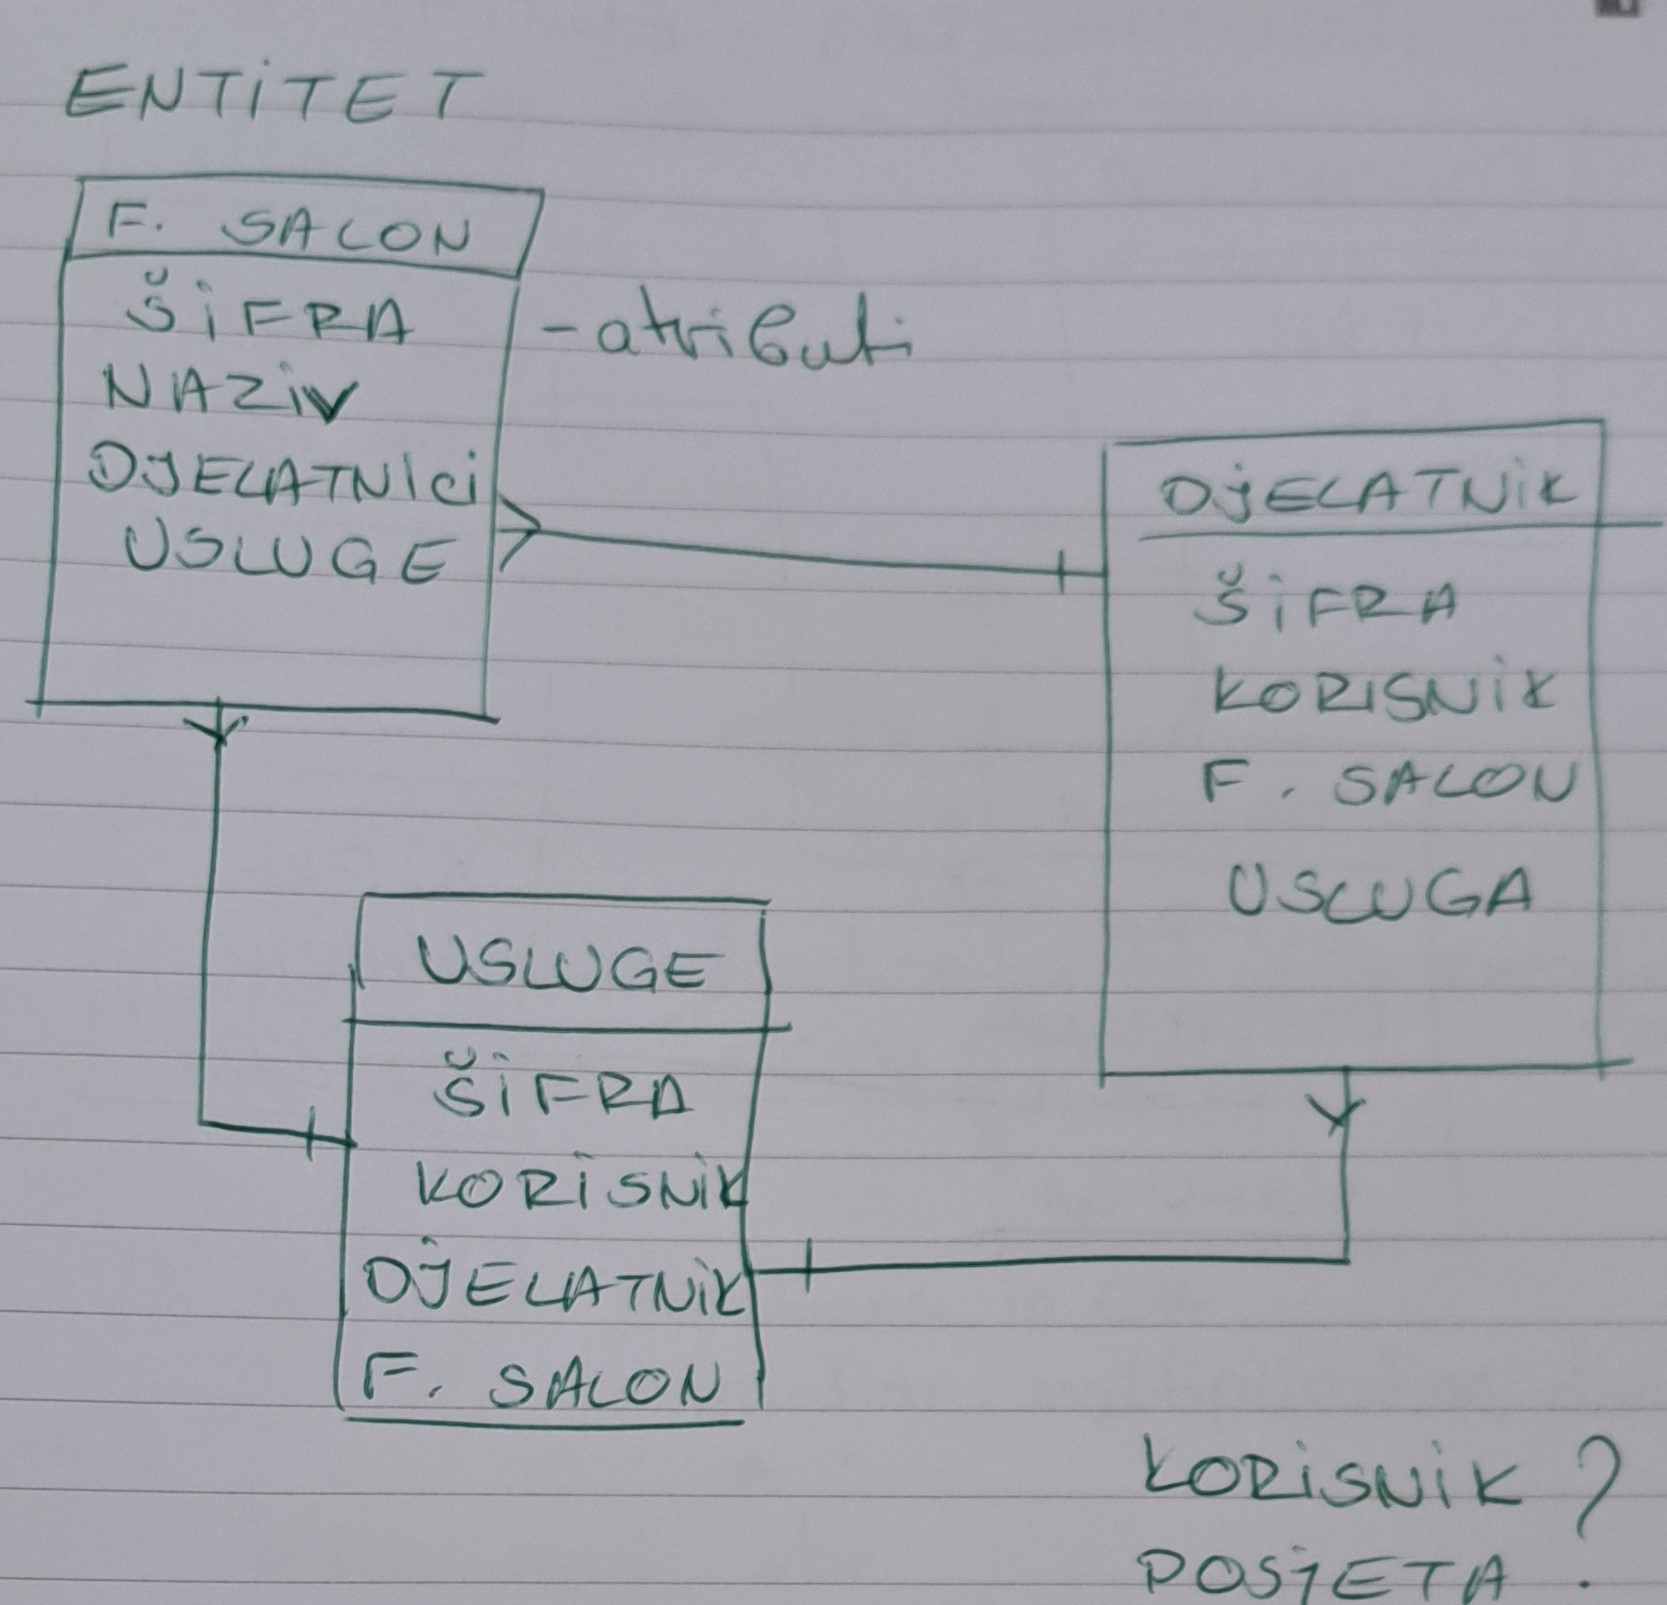 ENTITET
F. SALON
ŠIFRA
NAZIV
DJELATNICI
USLUGE
- atributi
DJELATNIK
ŠIFRA
KORISNIK
F. SALON
USLUGA
USLUGE
ŠIFRA
KORISNIK
DJELATNIK
F. SALON
KORISNIK ?
POSJETA